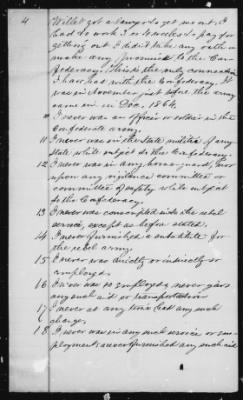 4 Willet got a lawyer to get me out. I
had to work 3 or 4 weeks to pay for
getting out. I didn't take any oath or
make any promises to the Con-
federacy. This is the only connection
I have had with the Confederacy. It
was in November just before the army
came in in Dec. 1864.
11 I never was an officer or soldier in the
Confederate army.
11 I never was in the State militia of any
State, while subject to the Confederacy.
12 I never was in any home-guard, nor
upon any vigilance committee or
committee of safety while subject
to the Confederacy.
13 I never was conscripted into the rebel
service, except as before stated.
14 I never furnished a substitute for
the rebel army.
15 I never was directly or indirectly so
employed.
16 I never was so employed & never gave
any such aid or transportation
17 I never at any time had any such
charge.
18 I never was in any such service or em-
ployment; never furnished any such aid